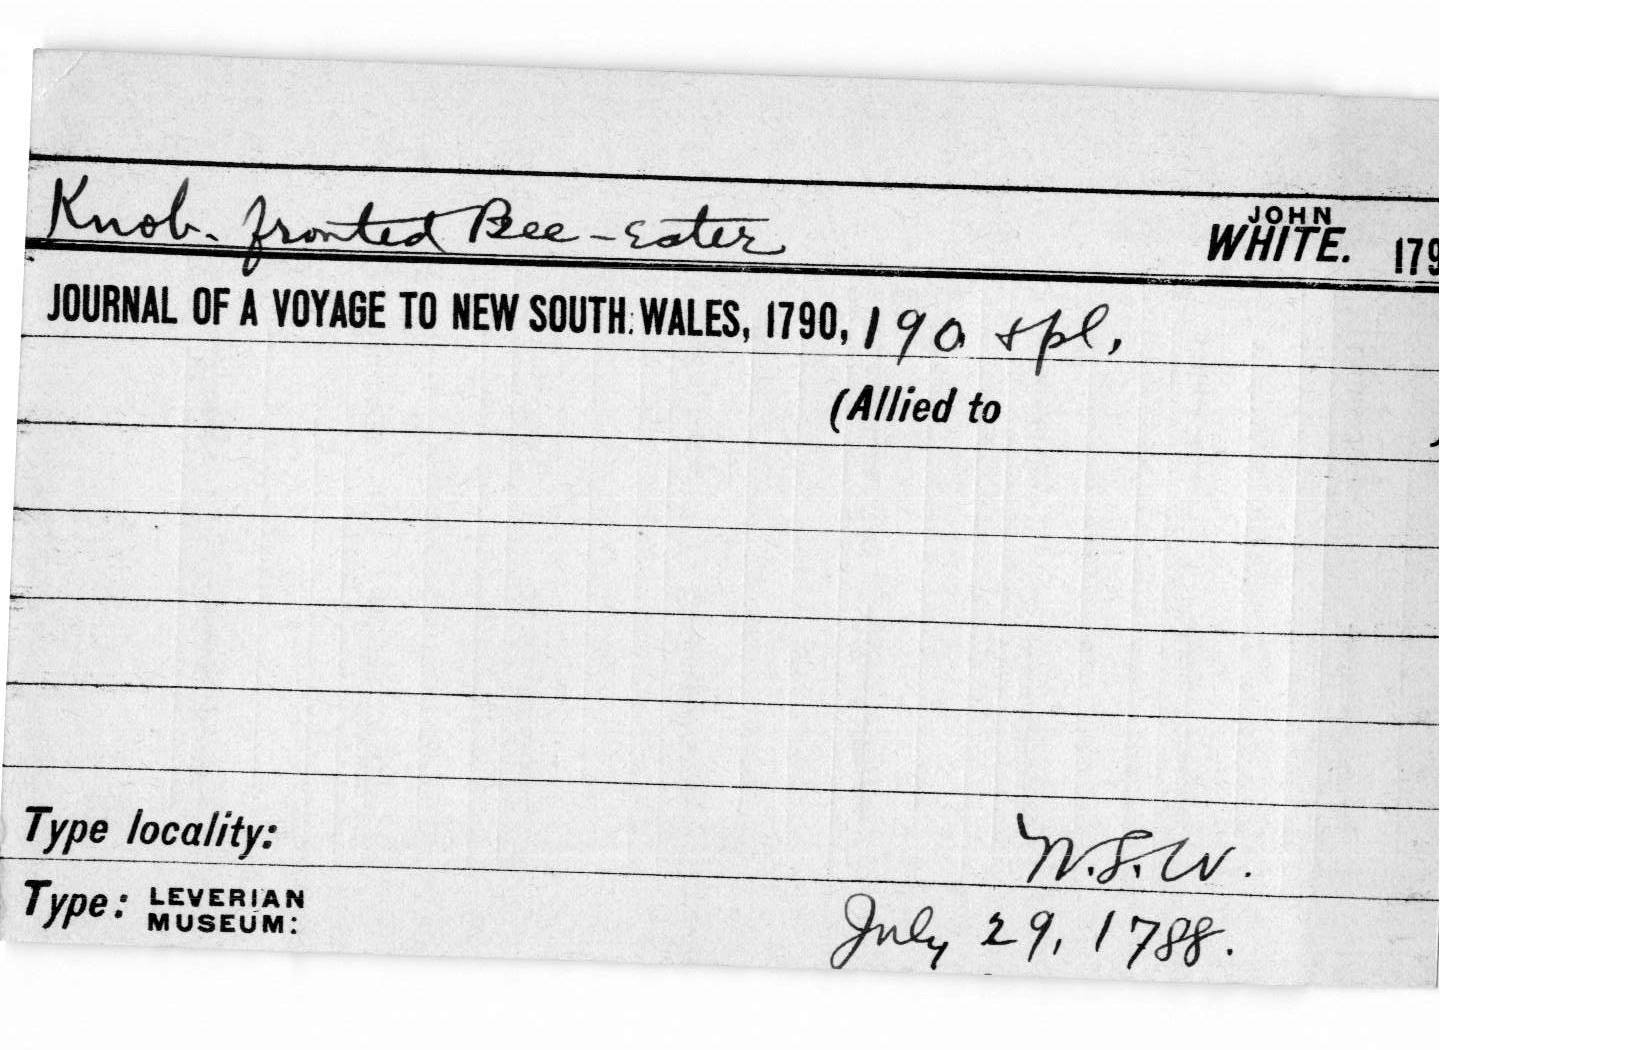 Knob-fronted Bee-eater JOHN WHITE. 179
JOURNAL OF A VOYAGE TO NEW SOUTH WALES, 1790, 190 + pl.
(Allied to )
Type locality: N.S.W.
Type: LEVERIAN MUSEUM: July 29, 1788.